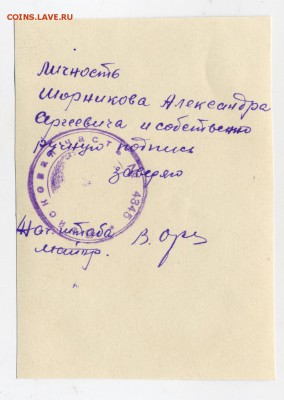 COINS.LAVE.RU
Личность
Шорникова Александра
Сергеевича и собственно
ручную подпись
заверяю
Нач. штаба
майор.
ВОИНСКОВАЯ ЧАСТЬ 4345